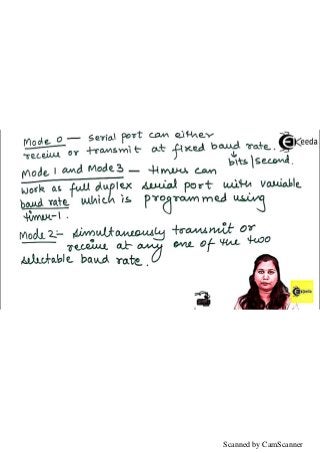 Mode 0 — Serial port can either
receive or transmit at fixed baud rate.
Keeda
bits/second.
Mode 1 and Mode 3 — timers can
work as full duplex serial port with variable
baud rate which is programmed using
timer-1.
Mode 2:- simultaneously transmit or
receive at any one of the two
selectable baud rate.
Keeda
Scanned by CamScanner